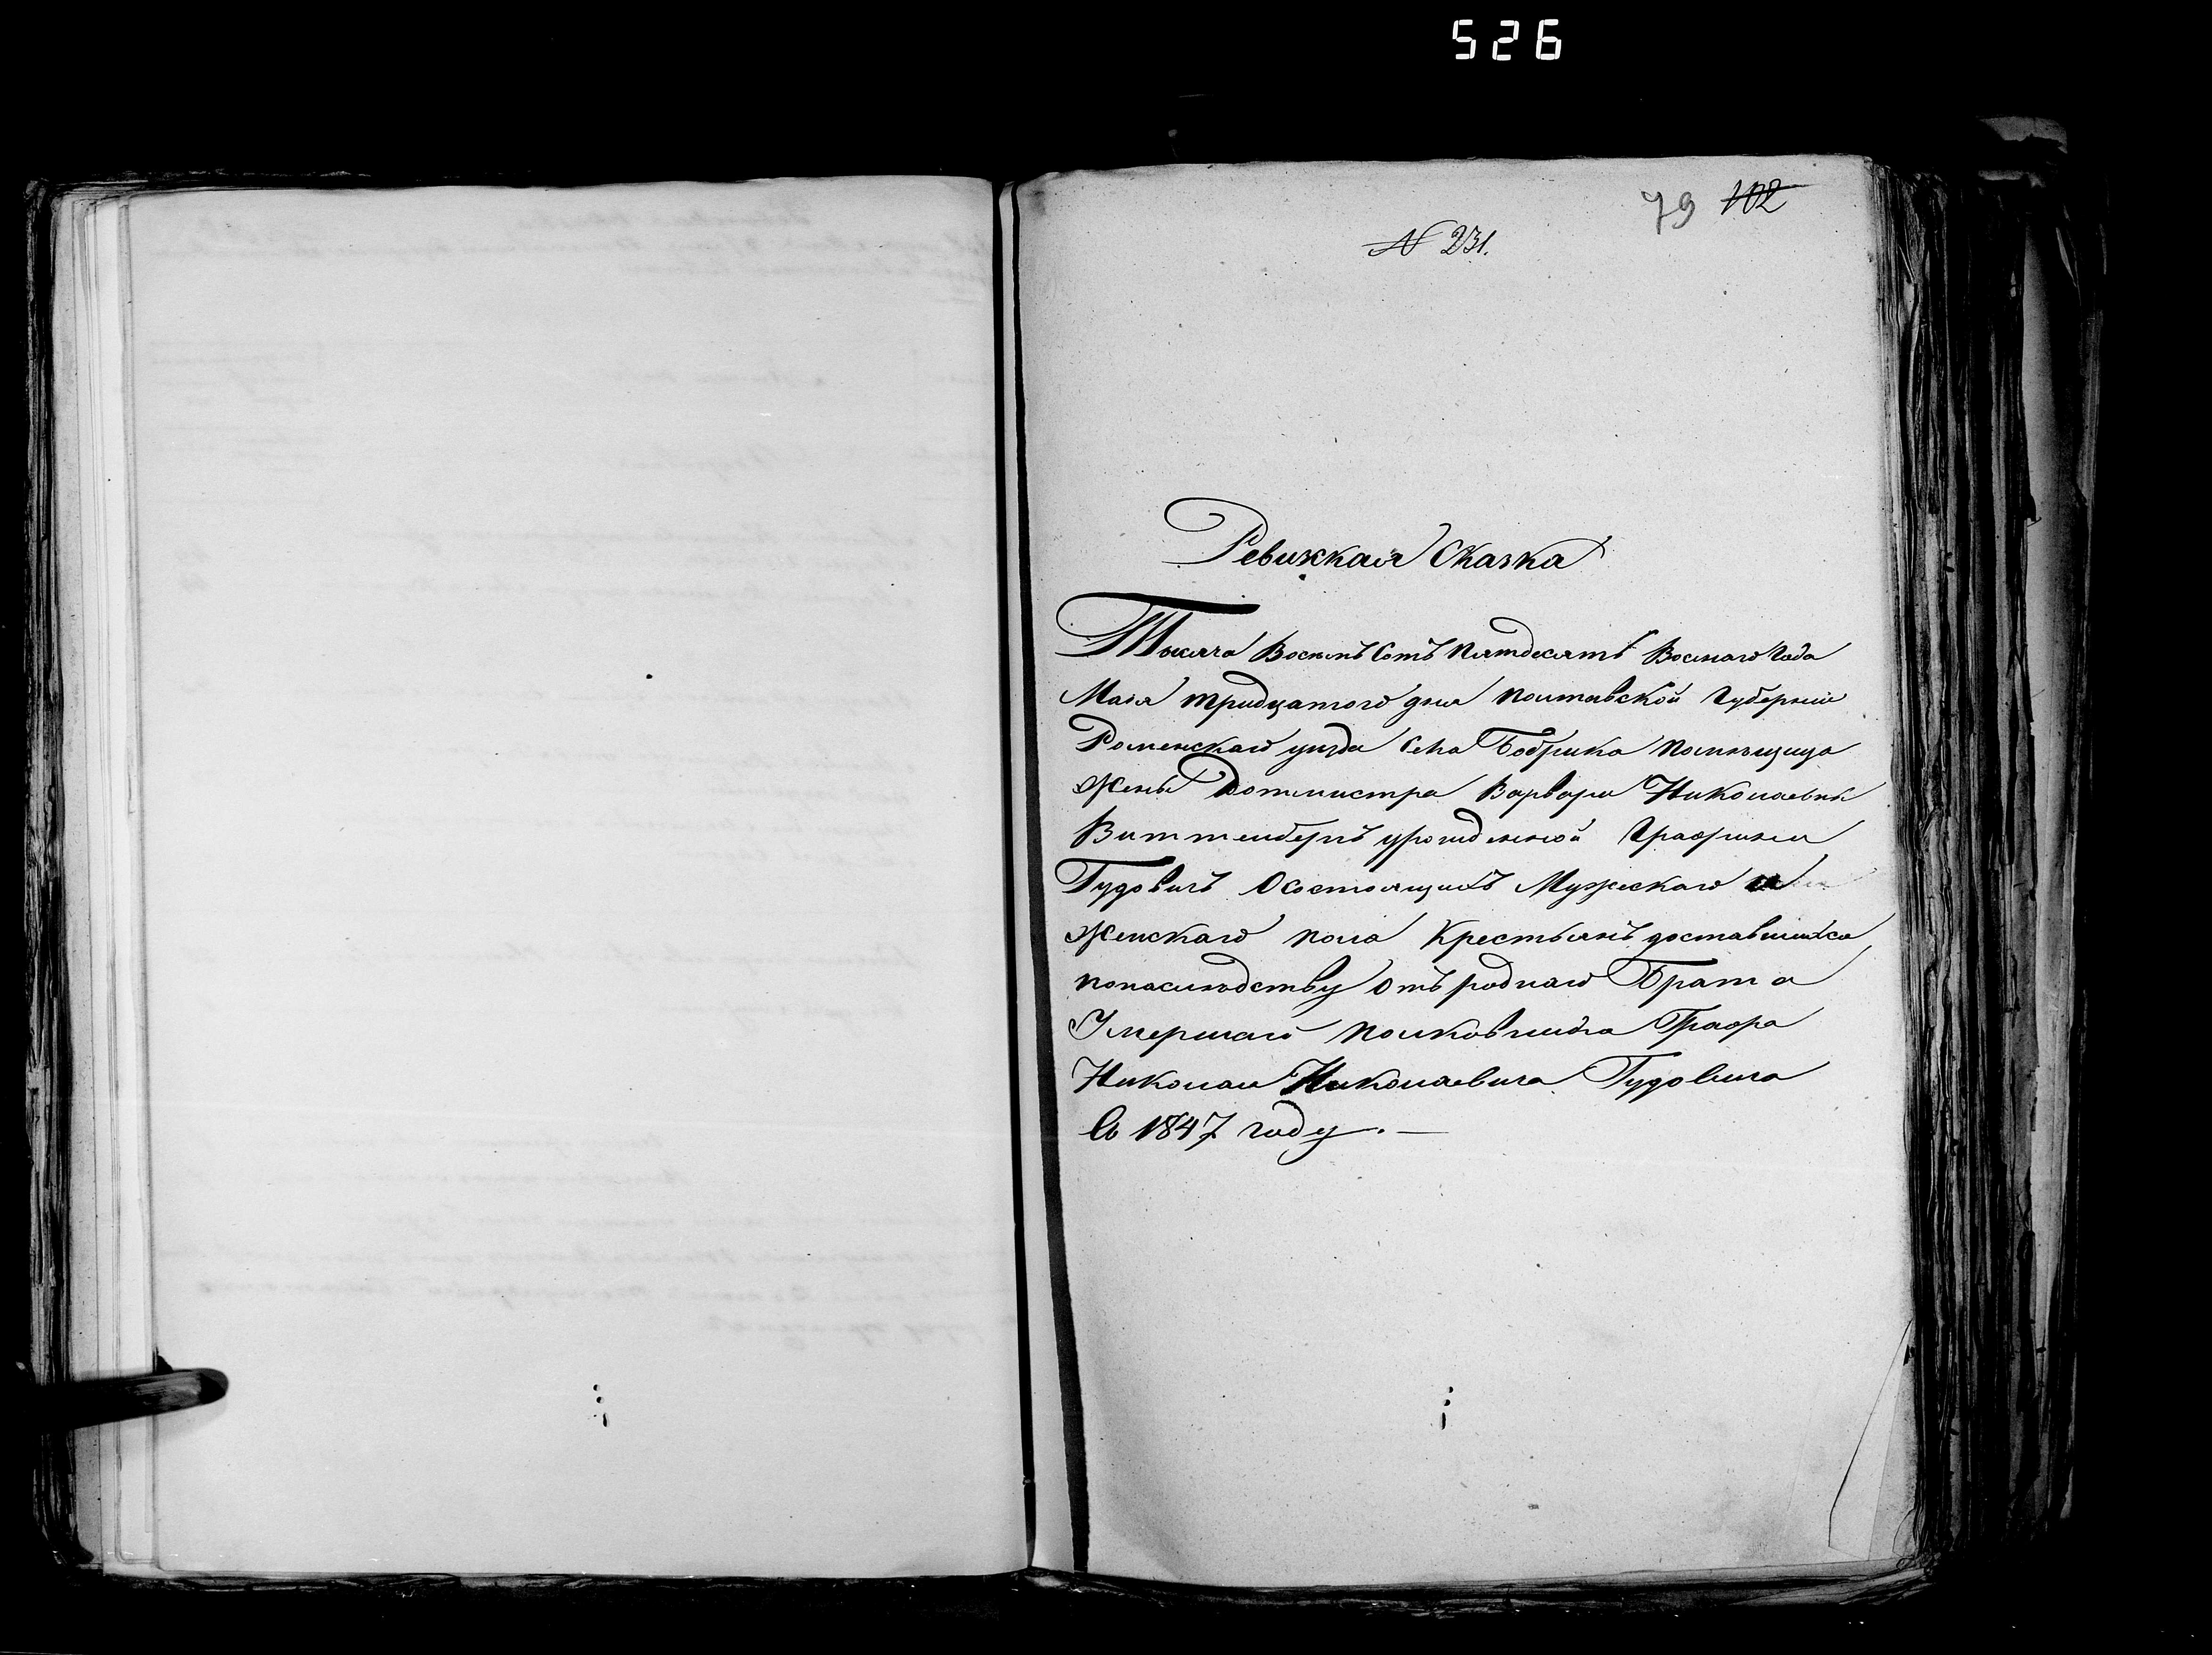 526
79 102
№ 231.
Ревижкая Сказка
Тысяча Восемь Сотъ Пятдесятъ Восмаго Года
Маія тридцатого дня Полтавской Губерніи
Роменскаго уезда Села Бобрика Помѣщица
Жены Ротмистра Варвары Николаевны
урожденной Графини
Гудовичъ Осостоящихъ Мужескаго и
Женскаго пола Крестьянъ доставшихся
понаслѣдству Отъ роднаго Брата
Умершаго Полковника Графа
Николая Николаевича Гудовича
въ 1847 году. —